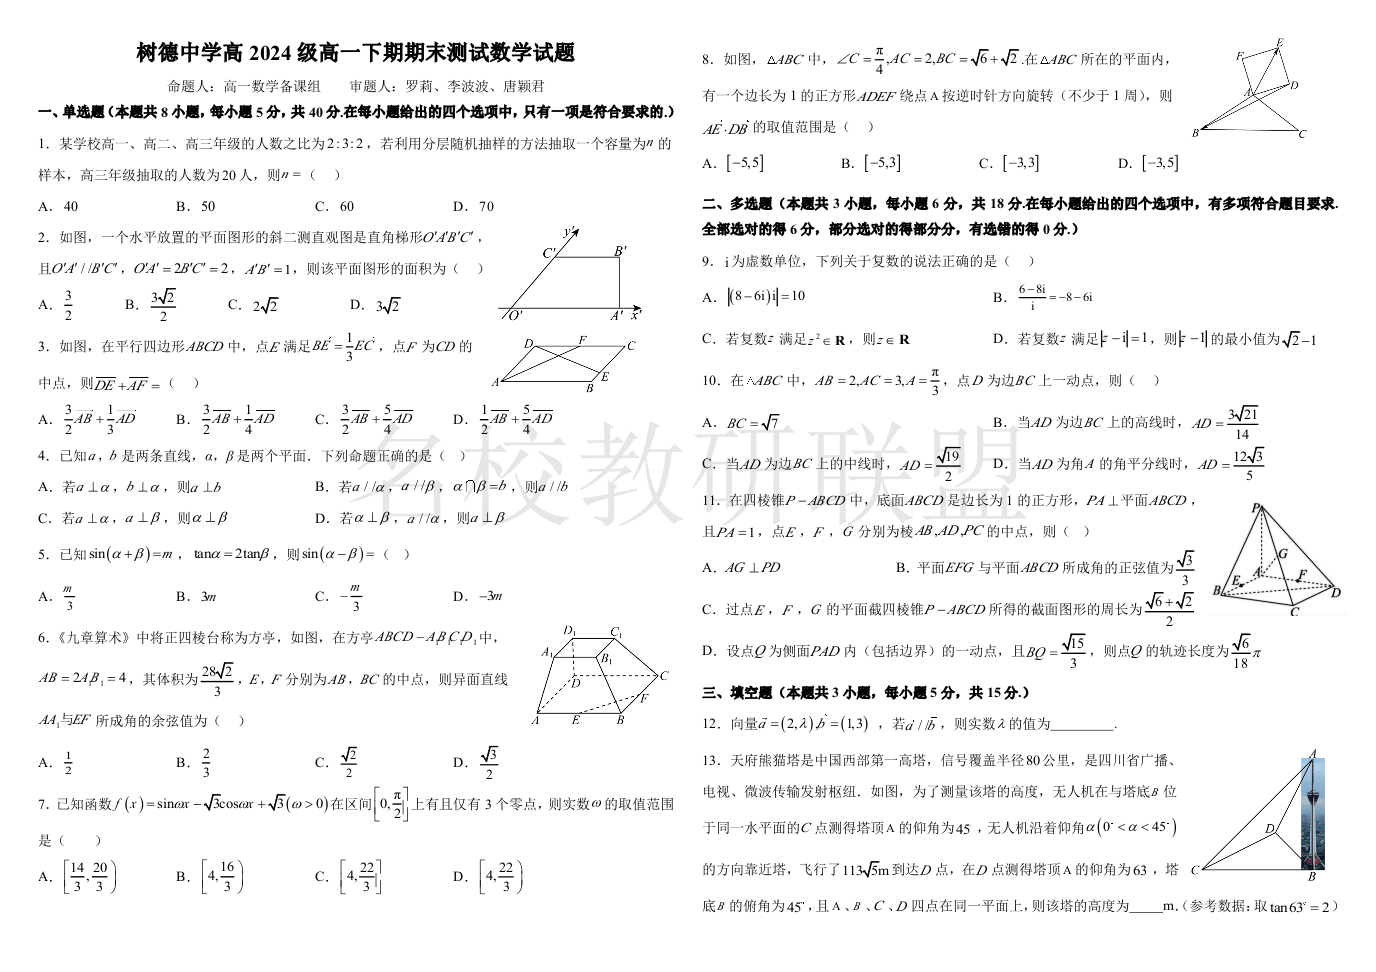 树德中学高 2024 级高一下期期末测试数学试题
命题人：高一数学备课组 审题人：罗莉、李波波、唐颖君
一、单选题（本题共 8 小题，每小题 5 分，共 40 分.在每小题给出的四个选项中，只有一项是符合要求的.）
1．某学校高一、高二、高三年级的人数之比为 2:3:2，若利用分层随机抽样的方法抽取一个容量为 n 的
样本，高三年级抽取的人数为 20 人，则 n =（ ）
A．40 B．50 C．60 D．70
2．如图，一个水平放置的平面图形的斜二测直观图是直角梯形 O′A′B′C′，
且 O′A′ // B′C′，O′A′ = 2B′C′ = 2，A′B′ = 1，则该平面图形的面积为（ ）
A．3/2 B．3√2/2 C．2√2 D．3√2
y′ C′ B′ O′ A′ x′
3．如图，在平行四边形 ABCD 中，点 E 满足 BE = 1/3 EC，点 F 为 CD 的
中点，则 DE + AF =（ ）
A．3/2 AB + 1/3 AD B．3/2 AB + 1/4 AD C．3/2 AB + 5/4 AD D．1/2 AB + 5/4 AD
D F C A B E
4．已知 a，b 是两条直线，α，β 是两个平面．下列命题正确的是（ ）
A．若 a ⊥ α，b ⊥ α，则 a ⊥ b B．若 a // α，a // β，α ∩ β = b，则 a // b
C．若 a ⊥ α，a ⊥ β，则 α ⊥ β D．若 α ⊥ β，a // α，则 a ⊥ β
5．已知 sin(α + β) = m，tanα = 2tanβ，则 sin(α − β) =（ ）
A．m/3 B．3m C．−m/3 D．−3m
6.《九章算术》中将正四棱台称为方亭，如图，在方亭 ABCD − A₁B₁C₁D₁ 中，
AB = 2A₁B₁ = 4，其体积为 28√2/3，E，F 分别为 AB，BC 的中点，则异面直线
AA₁与EF 所成角的余弦值为（ ）
A．1/2 B．2/3 C．√2/2 D．√3/2
D₁ C₁ A₁ B₁ D C F A E B
7．已知函数 f(x) = sinωx − √3cosωx + √3(ω > 0) 在区间 [0, π/2] 上有且仅有 3 个零点，则实数 ω 的取值范围
是（ ）
A．[14/3, 20/3) B．[4, 16/3) C．[4, 22/3] D．[4, 22/3)
8．如图，△ABC 中，∠C = π/4, AC = 2, BC = √6 + √2 .在△ABC 所在的平面内，
有一个边长为 1 的正方形 ADEF 绕点 A 按逆时针方向旋转（不少于 1 周），则
AE · DB 的取值范围是（ ）
A．[−5,5] B．[−5,3] C．[−3,3] D．[−3,5]
E F A D B C
二、多选题（本题共 3 小题，每小题 6 分，共 18 分.在每小题给出的四个选项中，有多项符合题目要求.
全部选对的得 6 分，部分选对的得部分分，有选错的得 0 分.）
9．i 为虚数单位，下列关于复数的说法正确的是（ ）
A．|(8−6i)i| = 10 B．(6−8i)/i = −8−6i
C．若复数 z 满足 z² ∈ R，则 z ∈ R D．若复数 z 满足 |z − i| = 1，则 |z − 1| 的最小值为 √2 − 1
10．在 △ABC 中，AB = 2, AC = 3, A = π/3，点 D 为边 BC 上一动点，则（ ）
A．BC = √7 B．当 AD 为边 BC 上的高线时，AD = 3√21/14
C．当 AD 为边 BC 上的中线时，AD = √19/2 D．当 AD 为角 A 的角平分线时，AD = 12√3/5
11．在四棱锥 P − ABCD 中，底面 ABCD 是边长为 1 的正方形，PA ⊥ 平面 ABCD，
且 PA = 1，点 E，F，G 分别为棱 AB, AD, PC 的中点，则（ ）
A．AG ⊥ PD B．平面 EFG 与平面 ABCD 所成角的正弦值为 √3/3
C．过点 E，F，G 的平面截四棱锥 P − ABCD 所得的截面图形的周长为 (√6 + √2)/2
D．设点 Q 为侧面 PAD 内（包括边界）的一动点，且 BQ = √15/3，则点 Q 的轨迹长度为 √6/18 π
P G A F B E C D
三、填空题（本题共 3 小题，每小题 5 分，共 15 分.）
12．向量 a = (2, λ), b = (1,3)，若 a // b，则实数 λ 的值为_________.
13．天府熊猫塔是中国西部第一高塔，信号覆盖半径 80 公里，是四川省广播、
电视、微波传输发射枢纽．如图，为了测量该塔的高度，无人机在与塔底 B 位
于同一水平面的 C 点测得塔顶 A 的仰角为 45，无人机沿着仰角 α(0° < α < 45°)
的方向靠近塔，飞行了 113√5m 到达 D 点，在 D 点测得塔顶 A 的仰角为 63，塔
底 B 的俯角为 45°，且 A、B、C、D 四点在同一平面上，则该塔的高度为_____m.（参考数据：取 tan63° = 2）
A D C B
名校教研联盟